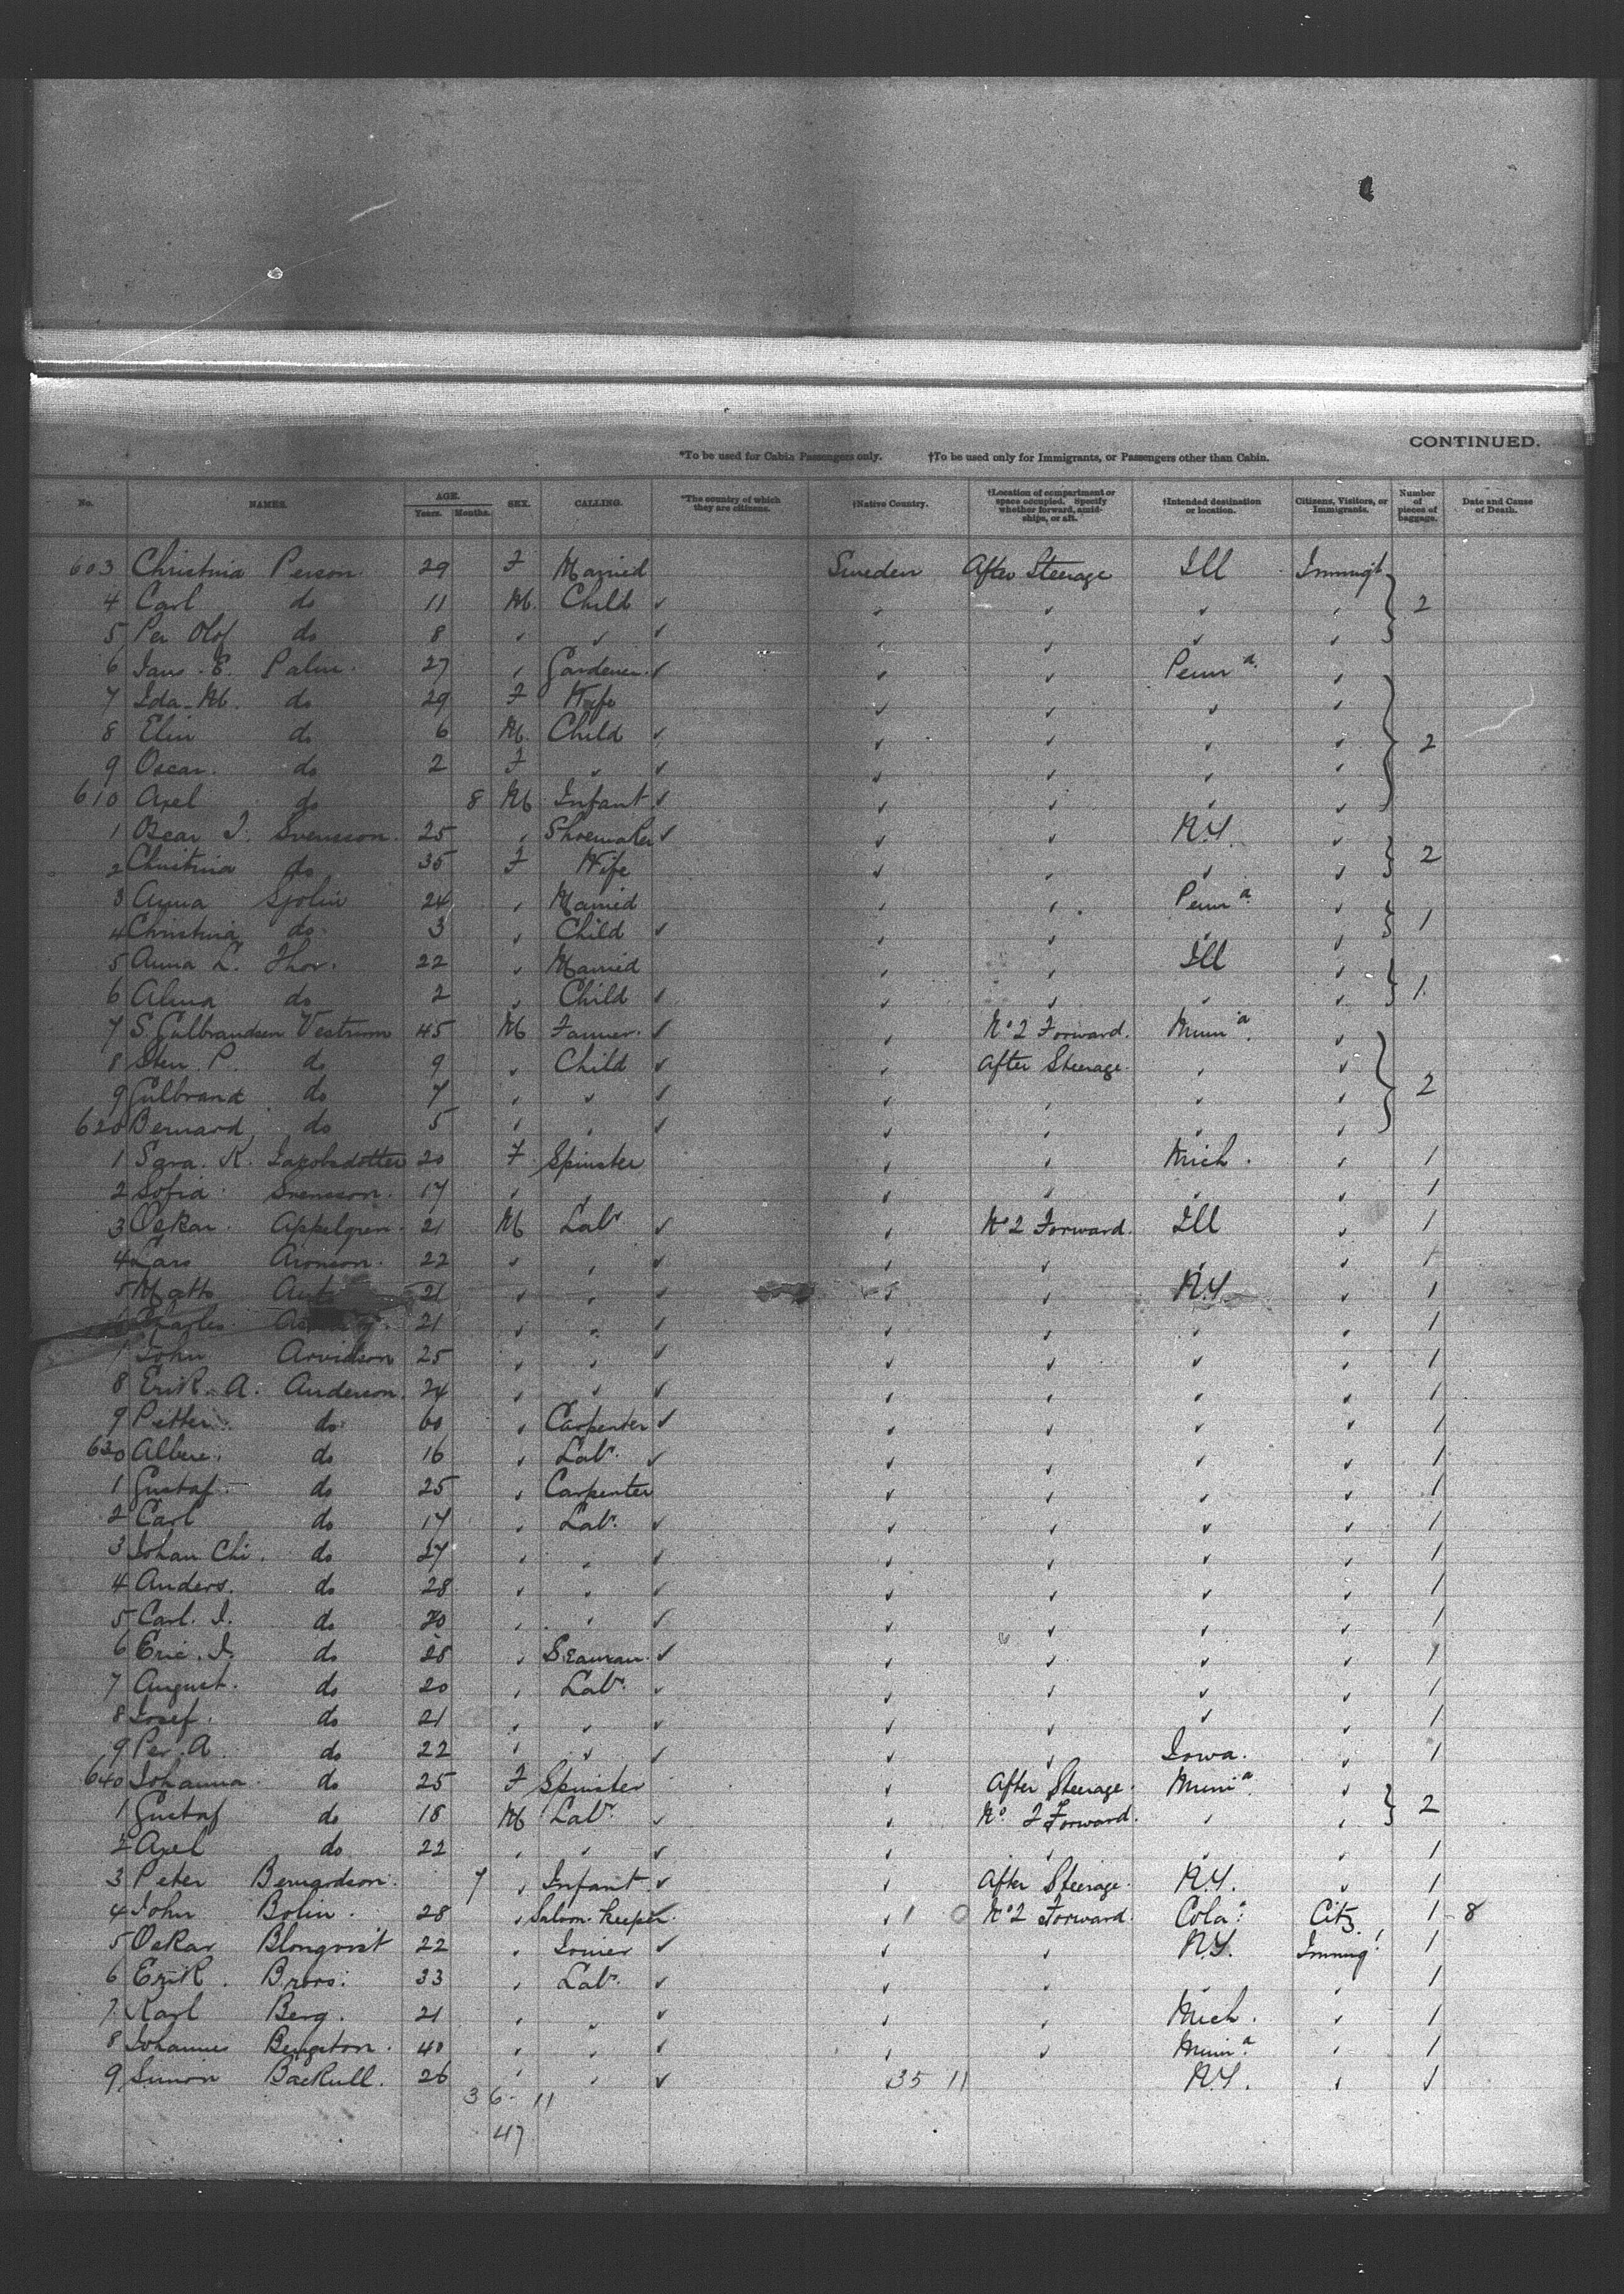 CONTINUED.
*To be used for Cabin Passengers only. †To be used only for Immigrants, or Passengers other than Cabin.
No. NAMES. AGE. Years. Months. SEX. CALLING. *The country of which they are citizens. †Native Country. †Location of compartment or space occupied. Specify whether forward, amidships, or aft. †Intended destination or location. Citizens, Visitors, or Immigrants. Number of pieces of baggage. Date and Cause of Death.
603 Christina Person 29 F Married Sweden After Steerage Ill Immigt
4 Carl do 11 M. Child 2
5 Per Olof do 8
6 Jans E. Palm. 27 Gardener Penna
7 Ida M. do 29 F Wife
8 Elin do 6 M. Child 2
9 Oscar. do 2 F
610 Axel do 8 M Infant
1 Oscar J. Svensson. 25 Shoemaker N.Y.
2 Christina do 35 F Wife 2
3 Anna Sjolin 24 Married Penna
4 Christina do 3 Child 1
5 Anna L. Thor. 22 Married Ill
6 Alma do 2 Child 1.
7 S. Gulbrandsen Vestrum 45 M Farmer. No 2 Forward. Minna
8 Sten P. do 9 Child After Steerage.
9 Gulbrand do 7 2
620 Bernard do 5
1 Sara. K. Jacobsdotter 20 F Spinster Mich. 1
2 Sofia Svensson. 17 1
3 Oskar. Appelgren. 21 M Labr No 2 Forward. Ill 1
4 Lars Aronson. 22 1
5 Matts 21 N.Y. 1
6 Charles 21 1
7 John Arvidson 25 1
8 Erik. A. Anderson. 24 1
9 Petter. do 60 Carpenter 1
630 do 16 Labr. 1
1 Gustaf do 25 Carpenter 1
2 Carl do 17 Labr. 1
3 Johan Chi. do 27 1
4 Anders. do 28 1
5 Carl. J. do 20 1
6 Eric. J. do 28 Seaman. 1
7 August. do 20 Labr. 1
8 Josef. do 21 1
9 Per. A do 22 Iowa. 1
640 Johanna. do 25 F Spinster After Steerage. Minna
1 Gustaf do 18 M Labr. No 2 Forward. 2
2 Axel do 22 1
3 Peter Bernardson. 7 Infant After Steerage. N.Y. 1
4 John Bolin. 28 Saloon Keeper. 1 0 No 2 Forward. Cola. Citz. 1 8
5 Oskar Blonqvist 22 Joiner N.Y. Immigt 1
6 Erik. Broos. 33 Labr. 1
7 Karl Berg. 21 Mich. 1
8 Johannes Bengtson. 40 Minna 1
9 Simon Backull. 26 35 11 N.Y. 1
36 - 11
47